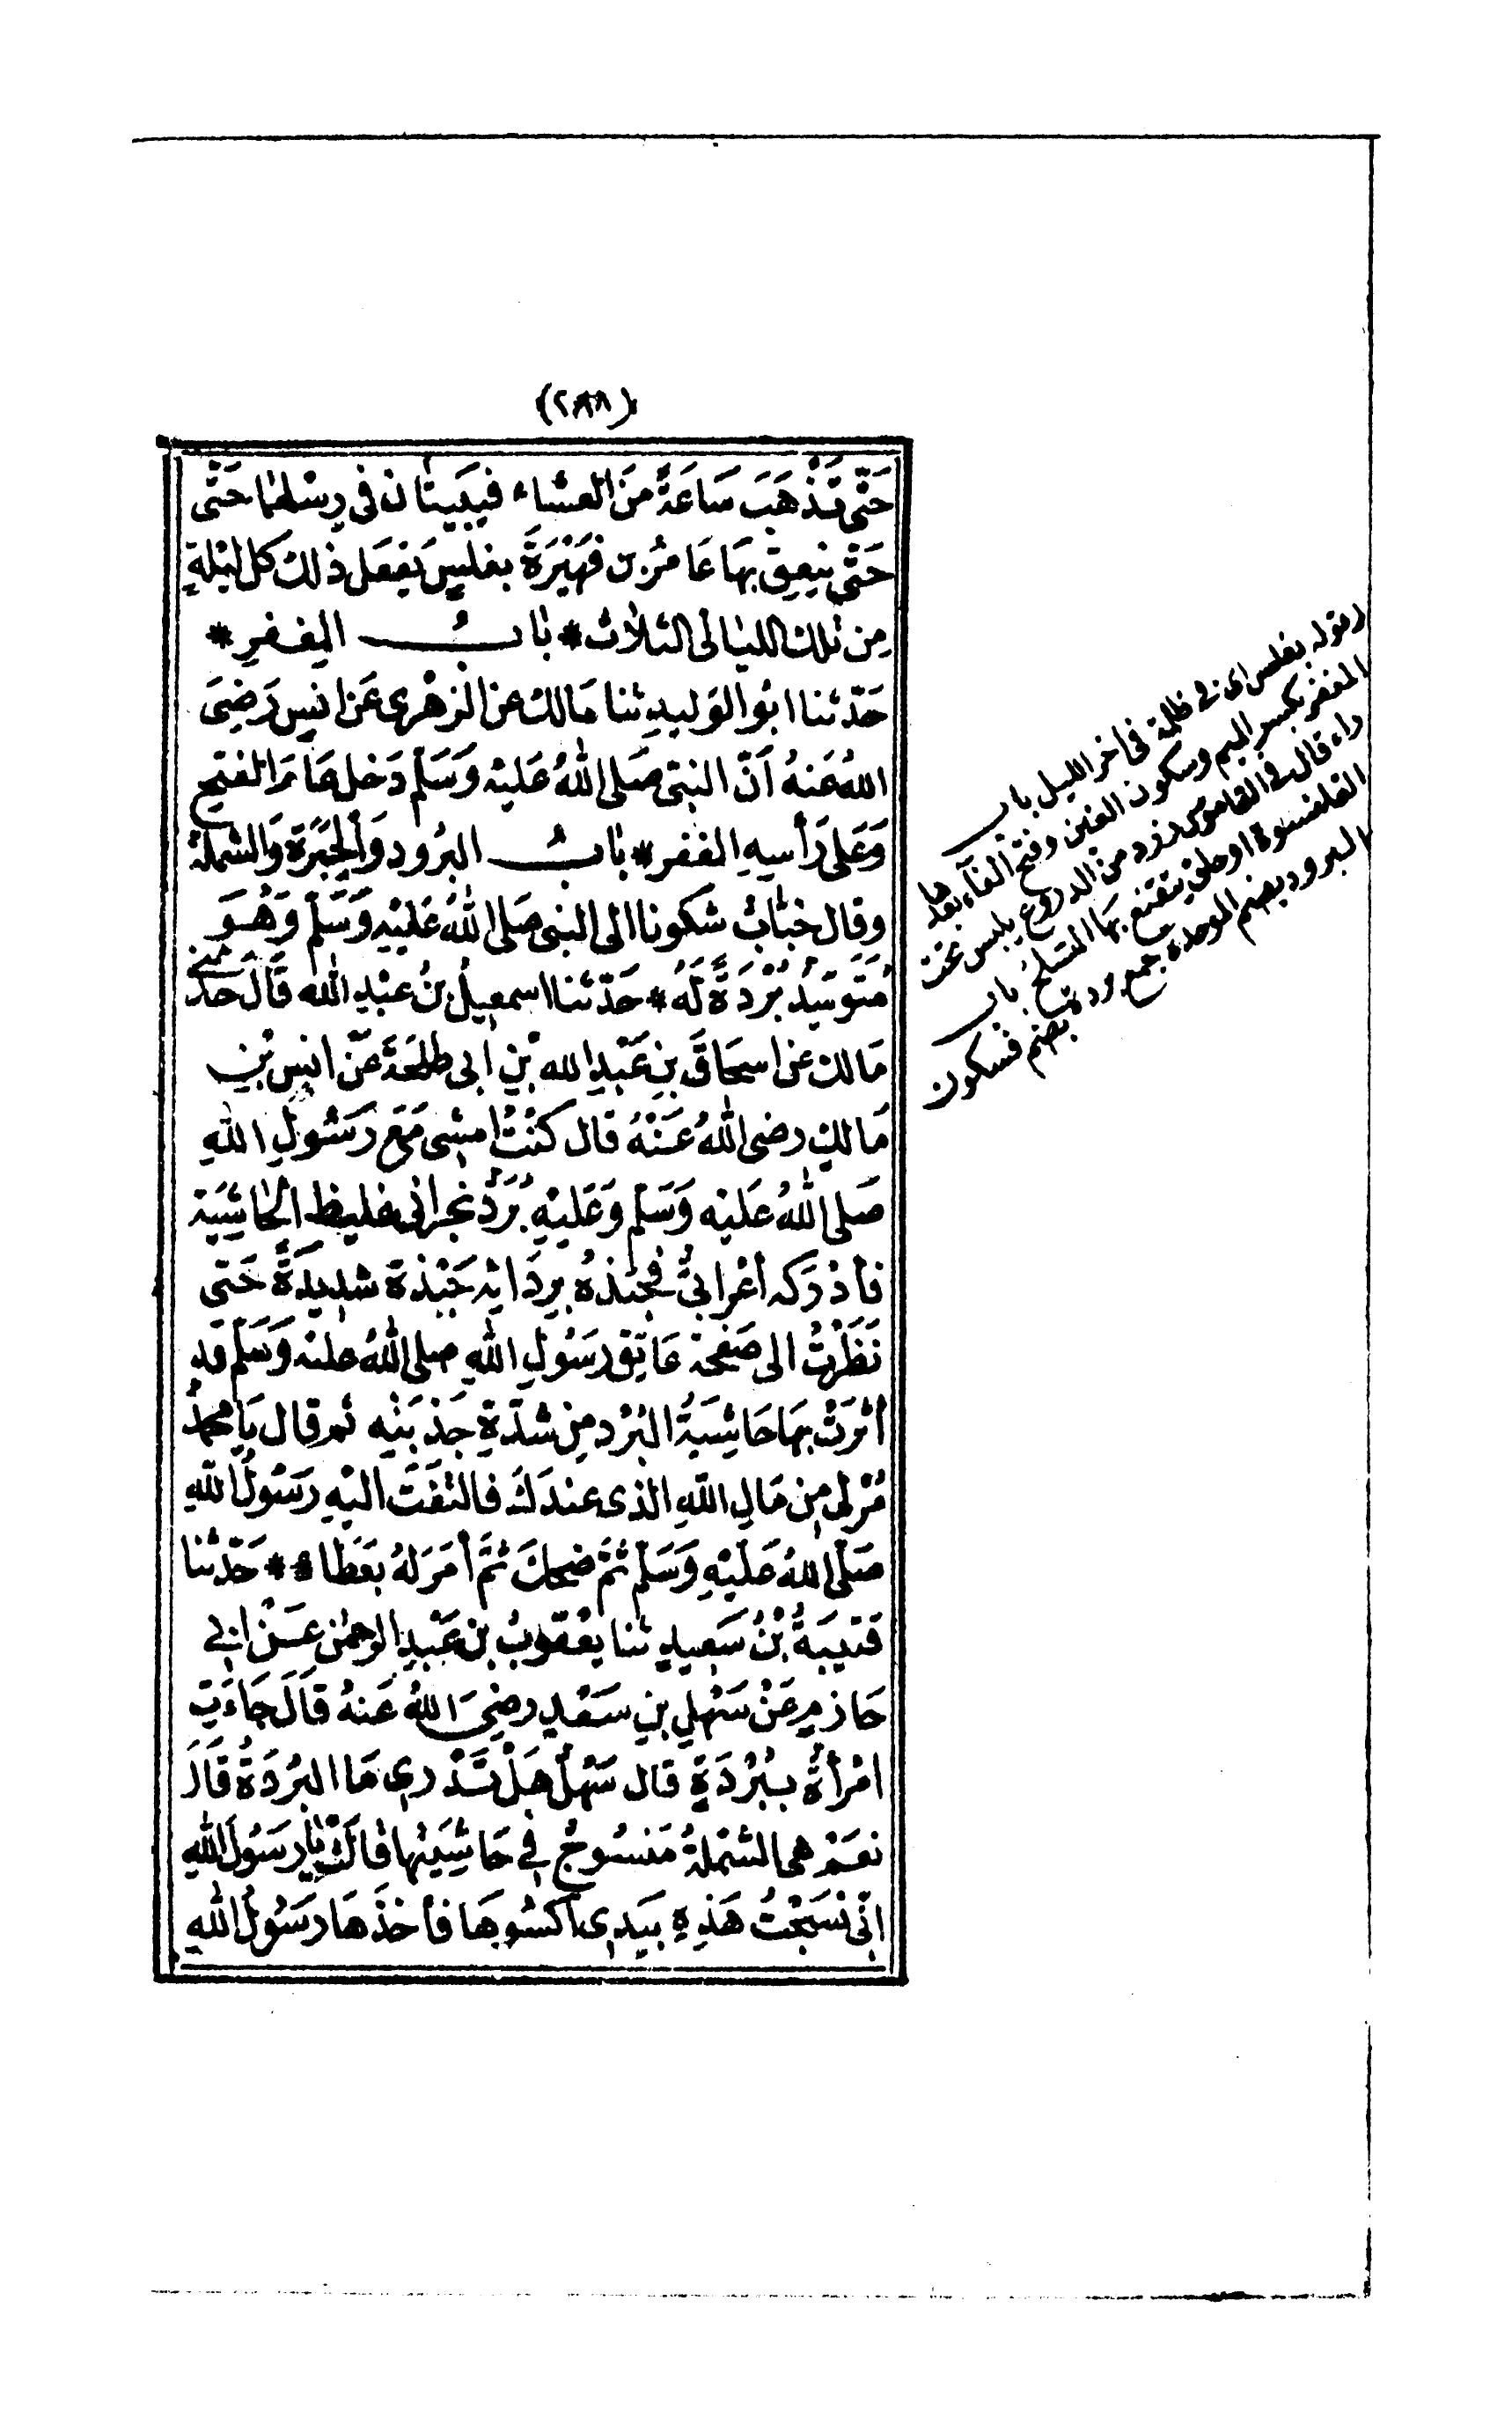 (٢٨٨)
حَتّٰى تَذْهَبَ سَاعَةٌ مِنَ العشاء فيَبيتَان فى رِسْلهمَا حَتّٰى
حَتّٰى ينعِقَ بِهَا عَامرُ بن فهَيْرَةَ بغلَسٍ يَفعَل ذلك كل لَيْلةٍ
مِن تلك الليَالى الثلاث * بَابُ المِغفرِ *
حَدّثنا ابُو الوَليدِ ثنا مَالك عن الزهْرى عَن انسٍ رَضِىَ
اللهُ عَنهُ اَنّ النبىّ صَلى اللهُ عَليْه وَسَلّم دَخل عَامَ الفتحِ
وَعَلى رَأسهِ المغفر * بَابُ البرُود وَالحِبَرَة وَالشملة
وقال خبّابٌ شكونا الى النبى صَلى اللهُ عَلَيْهِ وَسَلَّم وَهُوَ
مُتَوَسِّدٌ بُرْدَةً لَهُ * حَدّثنا اسمعِيلُ بنُ عبْدِ الله قَالَ حَدثنى
مَالك عن اسحَاقَ بنِ عَبْدِ الله بْنِ ابى طلحَةَ عَنْ انسِ بْنِ
مَالكٍ رضى اللهُ عَنْهُ قال كنْتُ امشى مَعَ رَسُولِ اللهِ
صَلى اللهُ عَليْه وَسَلم وَعَليْهِ بُرْدٌ نجرانى غليظ الحَاشيَة
فأدْرَكه أعْرابىٌّ فجَبَذهُ برِدَائه جَبْذة شديدَةً حَتى
نَظَرْتُ الى صَفحة عَاتِق رَسُول اللهِ صلى اللهُ عليْه وَسَلم قد
أثرَتْ بهَا حَاشيَةُ البُرْد مِن شدّةِ جَذبَتِه ثم قال يَا محمدُ
مُرْ لى مِن مَالِ اللهِ الذى عندَكَ فالتفَتَ اليْهِ رَسُولُ اللهِ
صَلّى اللهُ عَليْهِ وَسَلّم ثمّ ضحكَ ثمَّ أمَرَ لهُ بعَطاء * * حَدّثنا
قتيبَةُ بْنُ سَعِيدٍ ثنا يعْقوبُ بن عَبْدِ الرحمٰن عَنْ ابى
حَازمٍ عَنْ سَهْلِ بنِ سَعْدٍ رضِىَ اللهُ عَنهُ قالَ جَاءَتِ
امْرأةٌ ببُرْدَةٍ قال سَهْلٌ هَلْ تَدْرى مَا البُرْدَةُ قَالَ
نعَمْ هى الشمْلةُ مَنسُوجٌ فى حَاشيَتهَا قالتْ يَا رَسُولَ اللهِ
انّى نسَجْتُ هَذِهِ بيَدِى أكسُوكهَا فأخذَهَا رَسُولُ اللهِ
(قوله بغلس اى فى ظلمة فى اخر الليل باب
المغفر بكسر الميم وسكون الغين وفتح الفآء بعدها
راء قال فى القاموس زرد من الدروع يلبس تحت
القلنسوة او حلق يتقنع بها المتسلح باب
البرود بضم الموحدة جمع بردة بضم فسكون